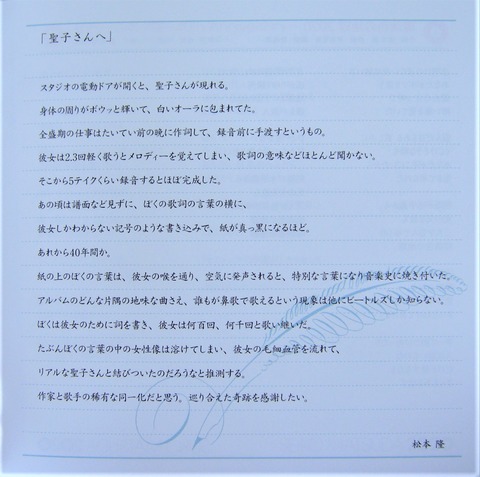 「聖子さんへ」
スタジオの電動ドアが開くと、聖子さんが現れる。
身体の周りがボウッと輝いて、白いオーラに包まれてた。
全盛期の仕事はたいてい前の晩に作詞して、録音前に手渡すというもの。
彼女は2,3回軽く歌うとメロディーを覚えてしまい、歌詞の意味などほとんど聞かない。
そこから5テイクくらい録音するとほぼ完成した。
あの頃は譜面など見ずに、ぼくの歌詞の言葉の横に、
彼女しかわからない記号のような書き込みで、紙が真っ黒になるほど。
あれから40年間か。
紙の上のぼくの言葉は、彼女の喉を通り、空気に発声されると、特別な言葉になり音楽史に焼き付いた。
アルバムのどんな片隅の地味な曲さえ、誰もが鼻歌で歌えるという現象は他にビートルズしか知らない。
ぼくは彼女のために詞を書き、彼女は何百回、何千回と歌い継いだ。
たぶんぼくの言葉の中の女性像は溶けてしまい、彼女の毛細血管を流れて、
リアルな聖子さんと結びついたのだろうなと推測する。
作家と歌手の稀有な同一化だと思う。巡り合えた奇跡を感謝したい。
松本 隆